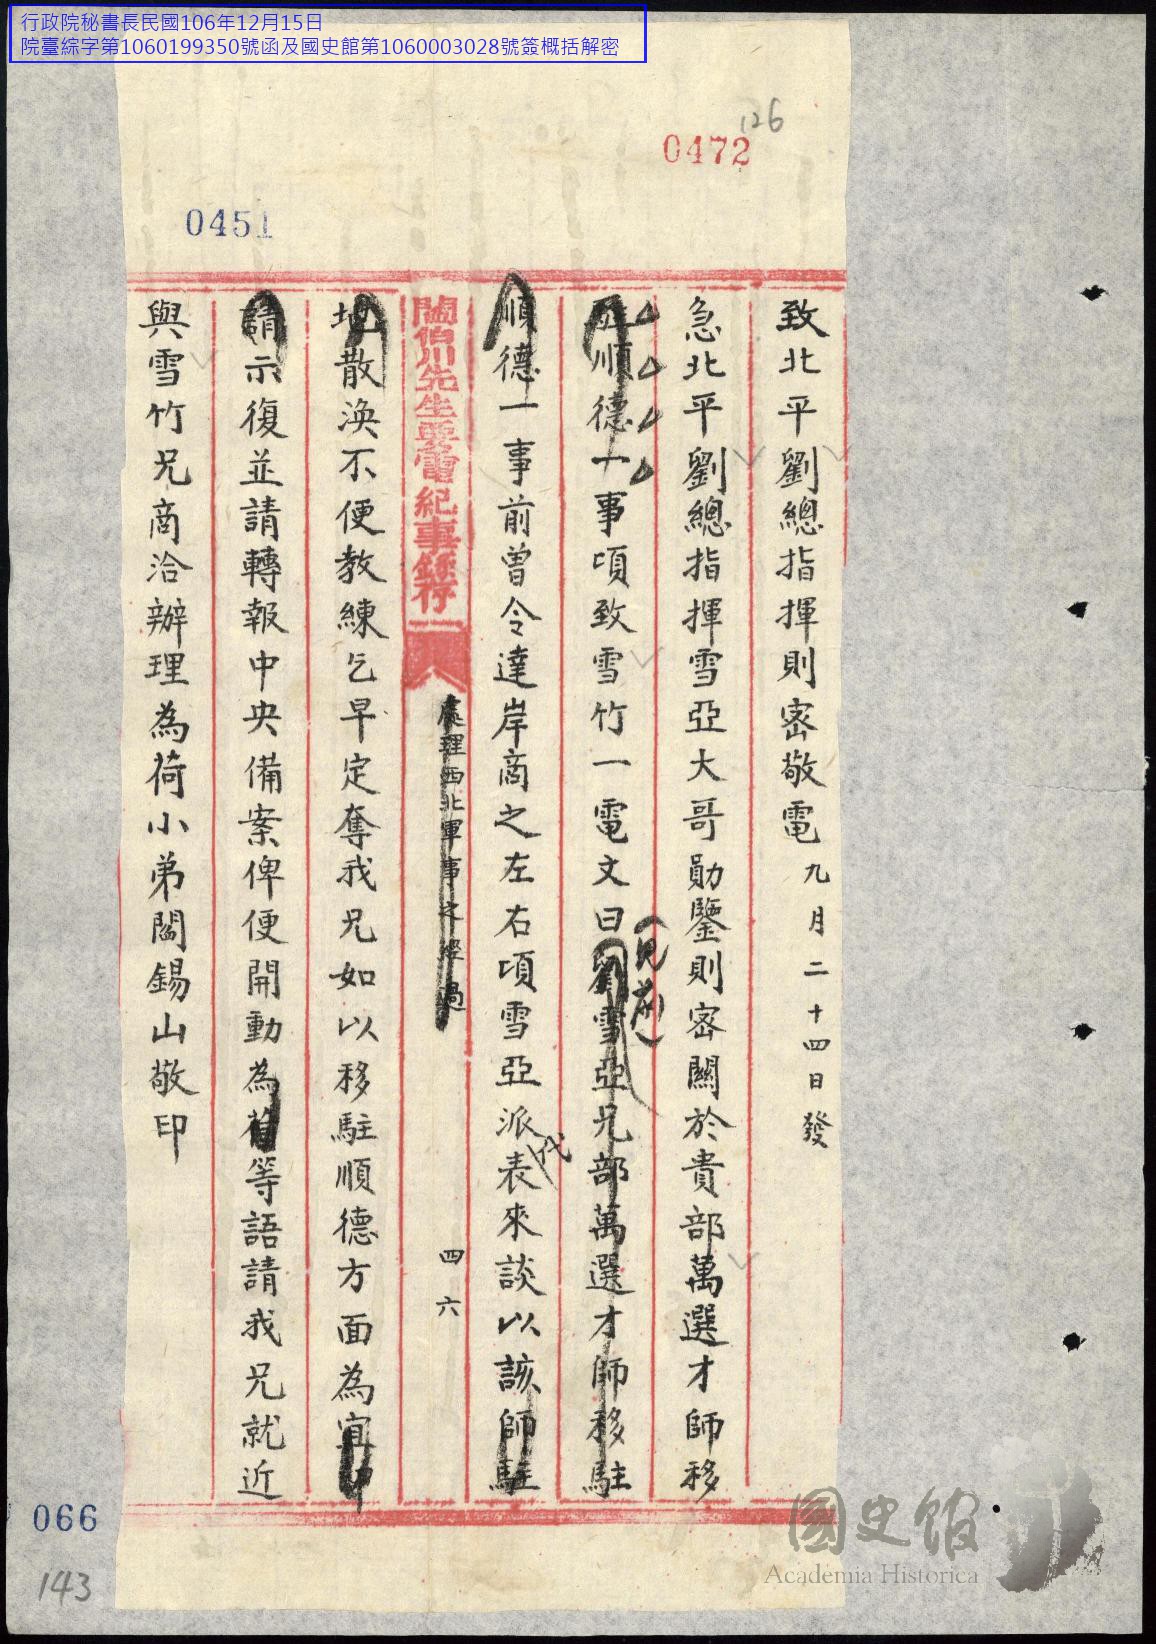 行政院秘書長民國106年12月15日
院臺綜字第1060199350號函及國史館第1060003028號簽概括解密
126
0472
0451
致北平劉總指揮則密敬電九月二十四日發
急北平劉總指揮雪亞大哥勛鑒則密關於貴部萬選才師移
駐順德一事頃致雪竹一電文曰劉雪亞兄部萬選才師移駐
(見前)
順德一事前曾令達岸商之左右頃雪亞派代表來談以該師駐
閻伯川先生要電紀事錄存
處理西北軍事之經過
四六
地散渙不便教練乞早定奪我兄如以移駐順德方面為宜即
請示復並請轉報中央備案俾便開動為荷等語請我兄就近
與雪竹兄商洽辦理為荷小弟閻錫山敬印
066
143
國史館
Academia Historica